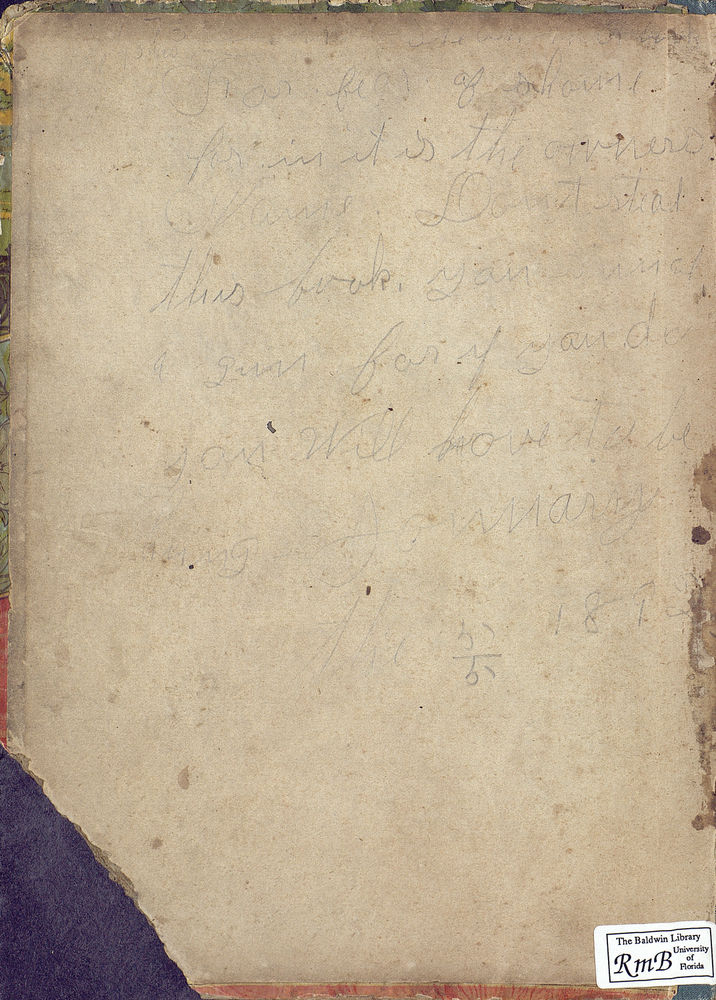 For fear of shame
for in it is the owners
Name. Dont steal
this book, you
for if you do
you will have to be
January
the 5 187
The Baldwin Library
RmB University of Florida